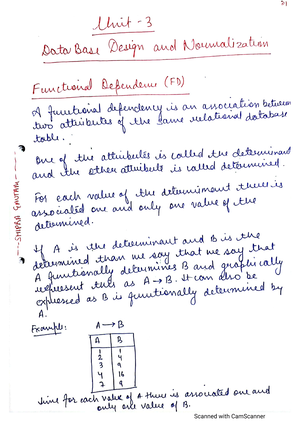 Unit - 3
Data Base Design and Normalization
Functional Dependence (FD)
A functional dependency is an association between
two attributes of the same relational database
table.
One of the attributes is called the determinant
and the other attribute is called determined.
For each value of the determinant there is
associated one and only one value of the
determined.
If A is the determinant and B is the
determined than we say that
A functionally determines B and graphically
represent this as A → B. It can also be
expressed as B is functionally determined by
A.
Example: A → B
A B
1 1
2 4
3 9
4 16
2 4
Since for each value of A there is associated one and
only one value of B.
Scanned with CamScanner